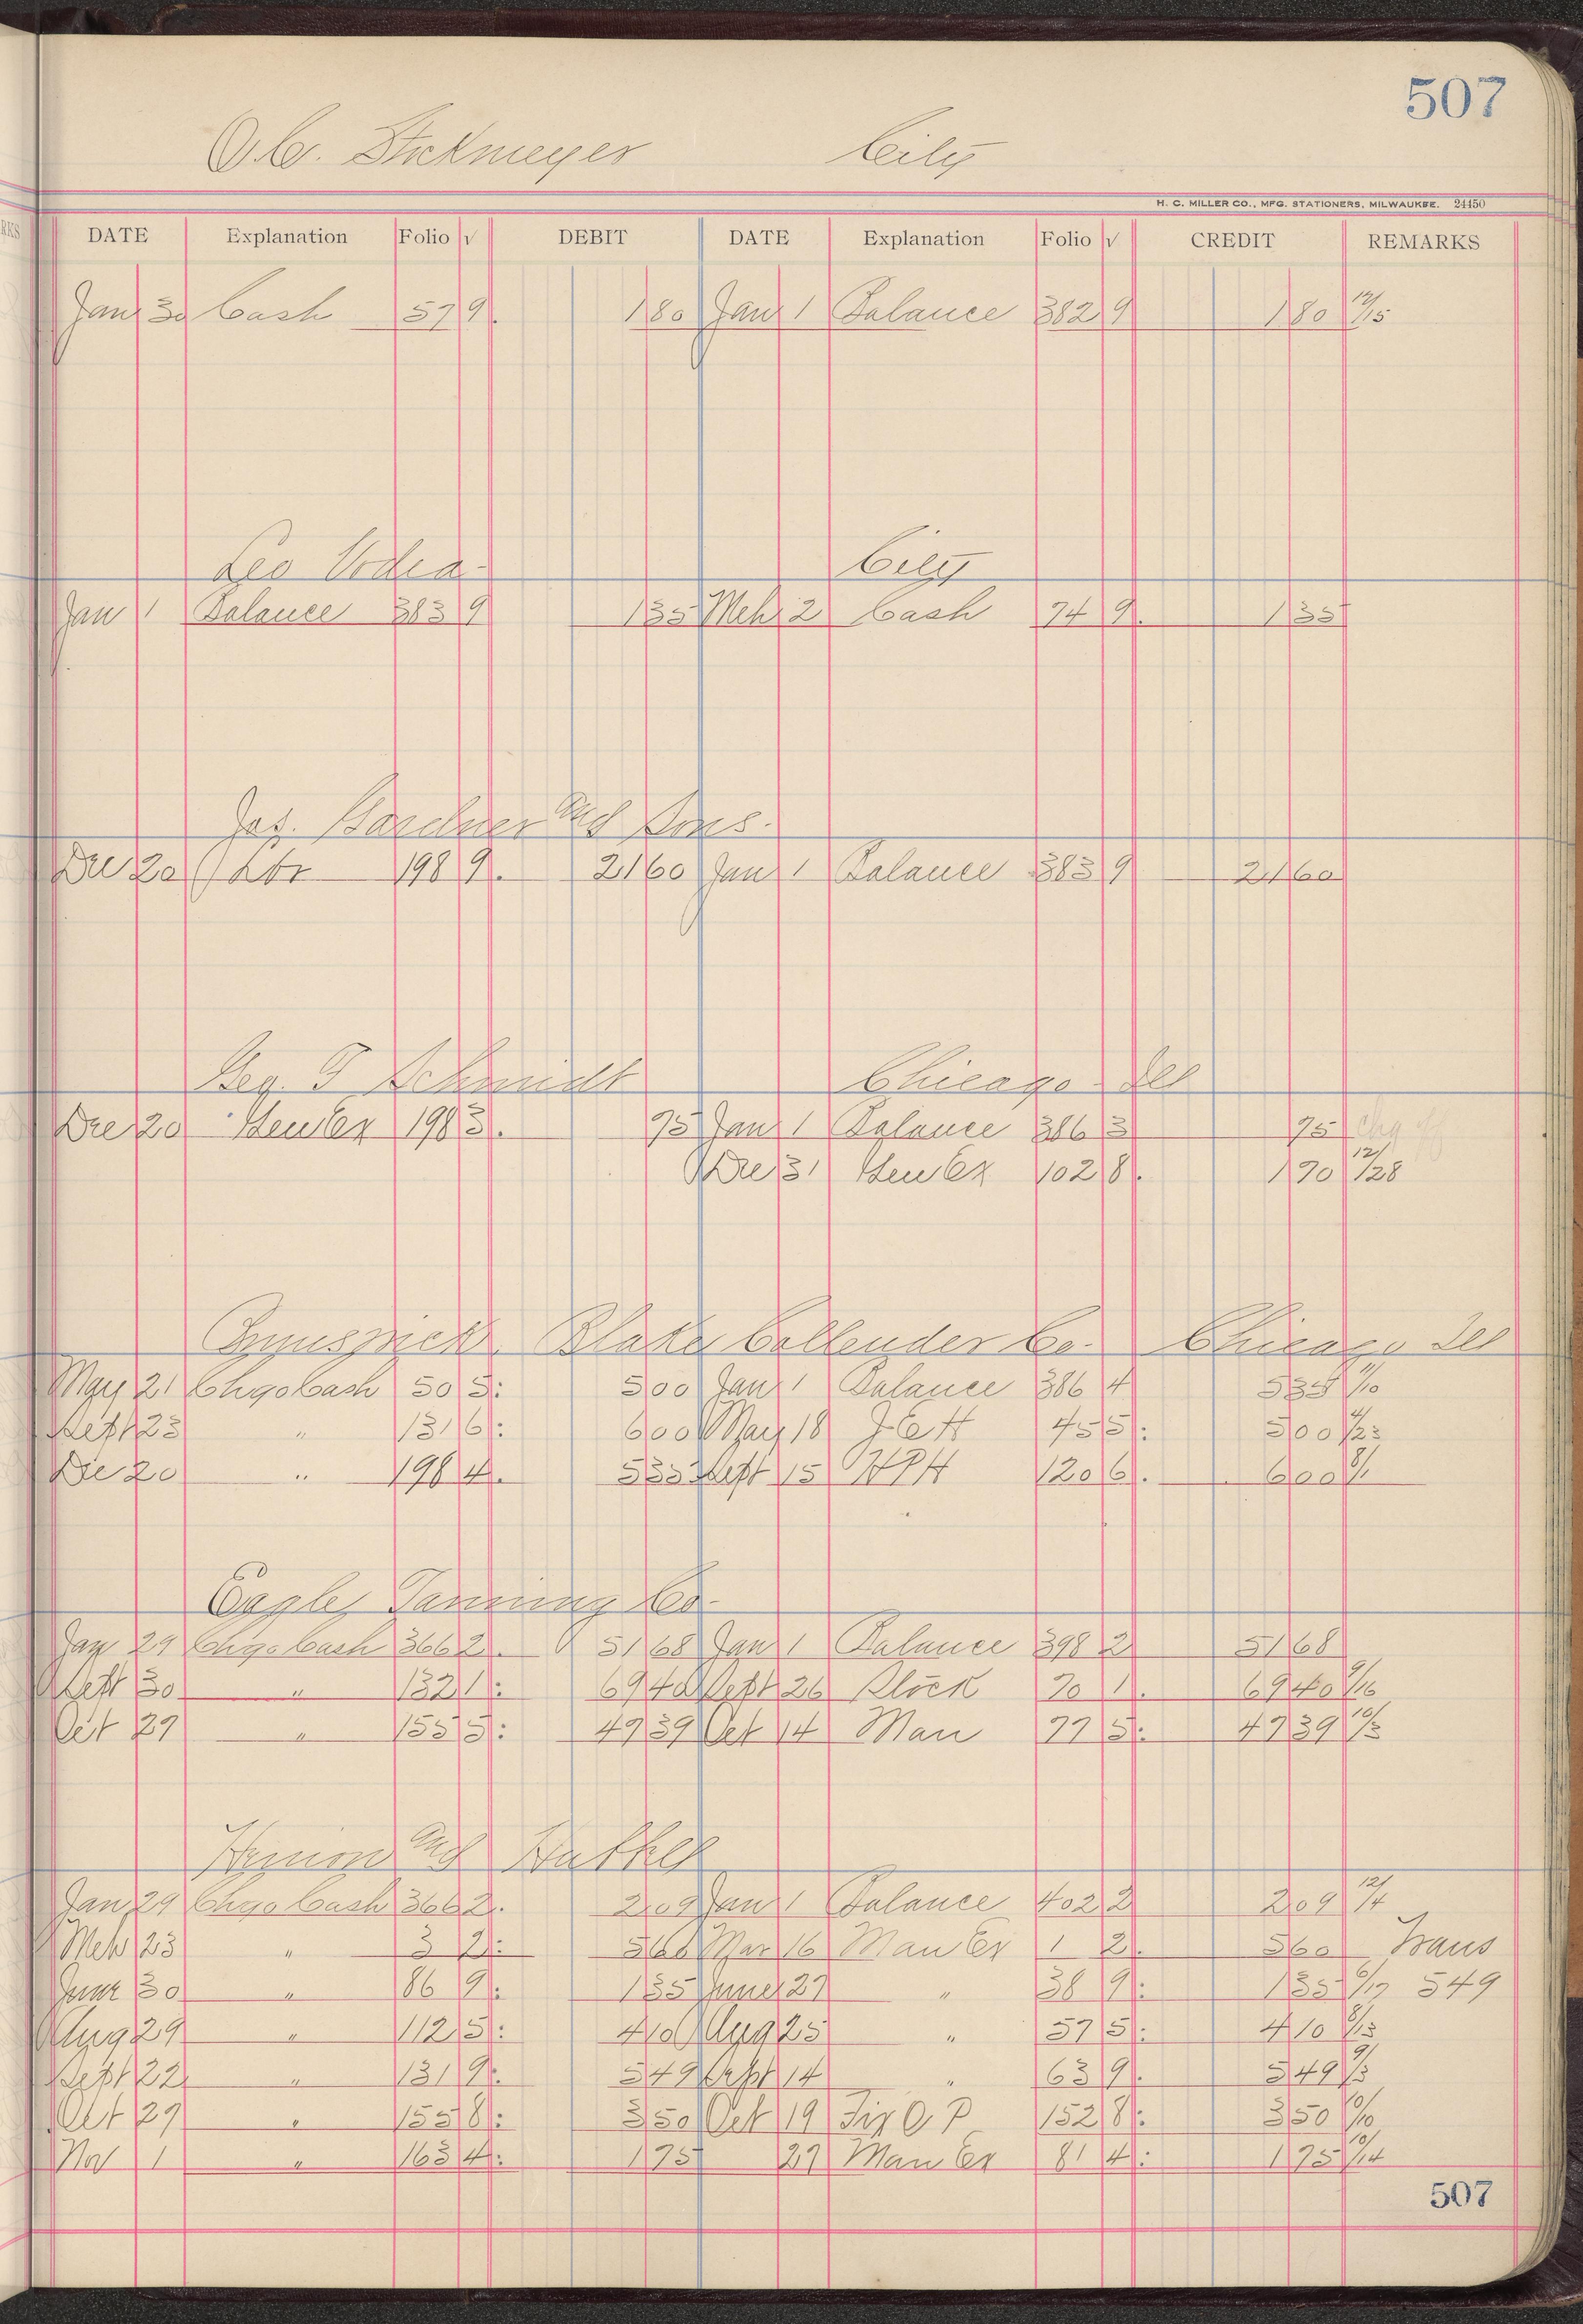 507
O.C. Stickmeyer City
H. C. MILLER CO., MFG. STATIONERS, MILWAUKEE. 24450
DATE Explanation Folio √ DEBIT DATE Explanation Folio √ CREDIT REMARKS
Jan 30 Cash 57 9. 1 80 Jan 1 Balance 382 9 1 80 12/15
Leo Vodra City
Jan 1 Balance 383 9 1 35 Mch 2 Cash 74 9. 1 35
Jas. Gardner and Sons.
Dec 20 198 9. 21 60 Jan 1 Balance 383 9 21 60
Geo. T Schmidt Chicago Ill
Dec 20 Gen Ex 198 3. 75 Jan 1 Balance 386 3 75 Chg off
Dec 31 Gen Ex 102 8. 1 70 12/28
Blake Callender Co. Chicago Ill
May 21 Chgo Cash 50 5: 5 00 Jan 1 Balance 386 4 5 35 11/10
Sept 23 " 131 6: 6 00 May 18 45 5: 5 00 4/23
Dec 20 " 198 4. 5 35 Sept 15 120 6. 6 00 8/1
Eagle Tanning Co.
Jan 29 Chgo Cash 366 2. 51 68 Jan 1 Balance 398 2 51 68
Sept 30 " 132 1: 69 40 Sept 26 Stock 70 1. 69 40 9/16
Oct 29 " 155 5: 47 39 Oct 14 Man 77 5: 47 39 10/3
and
Jan 29 Chgo Cash 366 2. 2 09 Jan 1 Balance 402 2 2 09 12/4
Mch 23 " 3 2: 5 60 Mar 16 Man Ex 1 2. 5 60 Trans
June 30 " 86 9: 1 35 June 27 " 38 9: 1 35 6/17 549
Aug 29 " 112 5: 4 10 Aug 25 " 57 5: 4 10 8/13
Sept 22 " 131 9: 5 49 Sept 14 " 63 9. 5 49 9/3
Oct 29 " 155 8: 3 50 Oct 19 Fix O P 152 8: 3 50 10/10
Nov 1 " 163 4: 1 75 27 Man Ex 81 4: 1 75 10/14
507